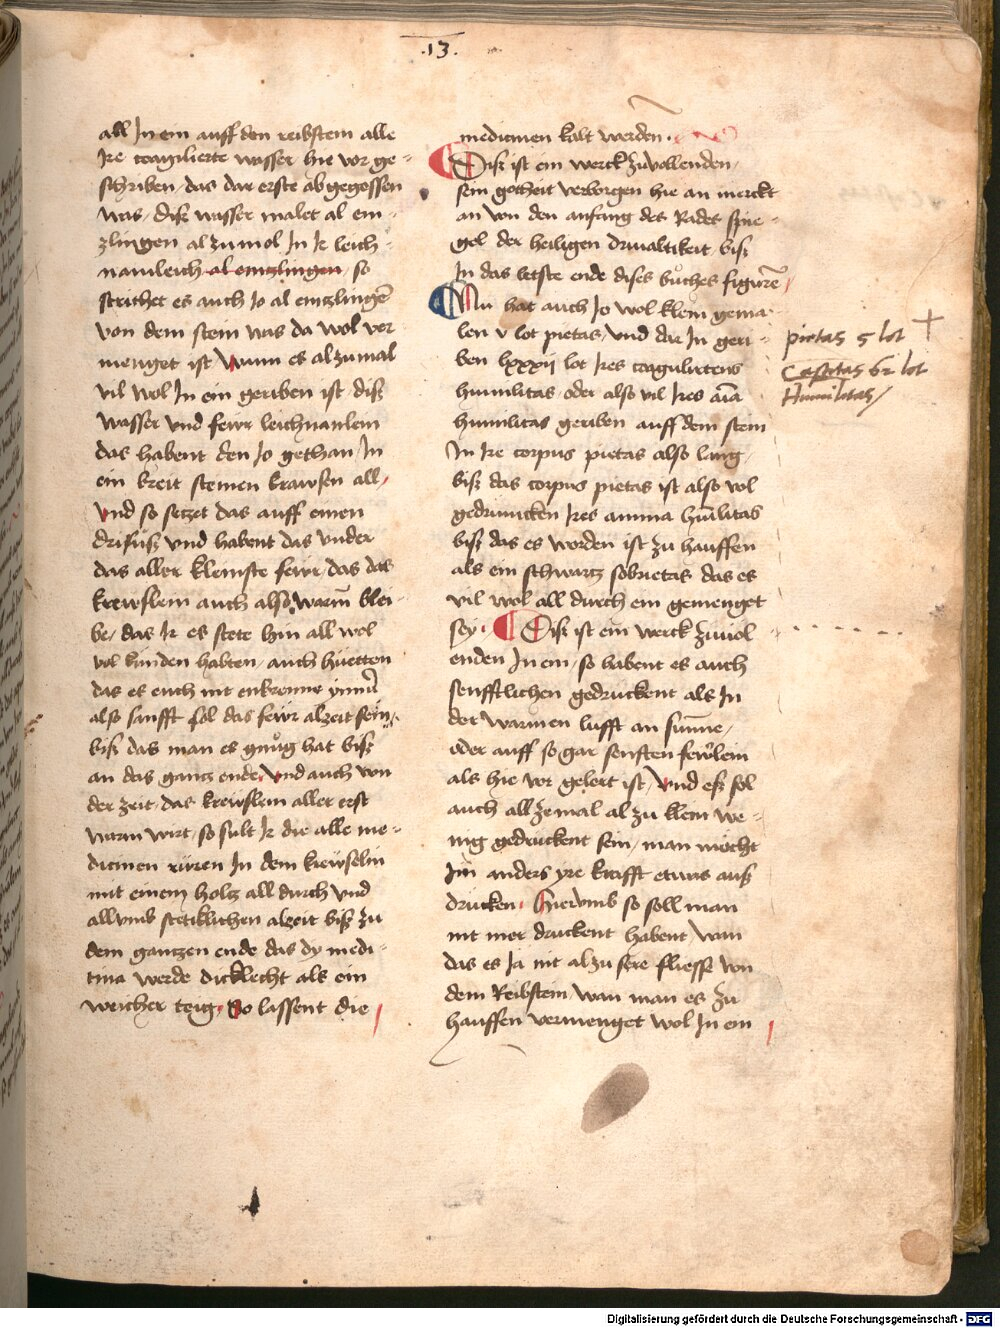 .13.
all In ein auff den reibstein alle
Ire coagulierte wasser hie vor ge-
schriben, das dar erste abgegossen
was, diß wasser malet al ein-
zlingen al zumol In Ir leich-
namleich al eintzlingen, so
strichet es auch Jo al eintzlingē
von dem stein was da wol ver
menget ist Wann es alzumal
vil wol In ein geriben ist diß
wasser vnd fewr leichnamlein
das habent den Jo gethan In
ein breit steinen krawsen all,
vnd so setzet das auff einen
drifuß vnd habent das vnder
das aller kleinste fewr, das das
krewslein auch also warm blei-
be, das Ir es stete hin all wol
vol kinden habten, auch hüetten
das es euch nit enbrenne ymmer
also sanfft sol das fewr alzeit sein,
biß das man es gnůg hat biß
an das gantz ende, vnd auch von
der zeit, das krewslein aller erst
warm wirt, so sult Ir die alle me-
dicinen rüren In dem krewselin
mit einem holtz all durch vnd
all vmb stetiklichen alzeit biß zu
dem gantzen ende das dy medi-
cina werde dicklecht als ein
weicher teig, So lassent die
medicinen kalt werden.
Diß ist ein werck zůvollenden,
sein gotheit verborgen hie an merckt
an von den anfang des Rades spie-
gel der heiligen driualtikeit, biß
In das letste ende dises bůches figurē
Nu hat auch Jo wol klein gema-
len v lot pietas, vnd dar In geri-
ben lxxxij lot Ires coagulirtens
humilitas oder also vil Ires aīa
humilitas geriben auff dem stein
In Ire corpus pietas also lang,
biß das corpus pietas ist also vol
gedrüncken Ires anima hūilitas
biß das es worden ist zu hauffen
als ein schwartz sobrietas das es
vil wol all durch ein gemenget
sey. Diß ist ein werck zuuol
enden In ein, so habent es auch
senfftlichen gedruckent als In
der warmen lufft an sunne,
oder auff so gar senften fewrlein
als hie vor gelert ist, vnd eß sol
auch allzemal al zu klein we-
nig gedruckent sein, man möcht
Im anders yre krafft etwas auß
drücken. Hierumb so soll man
nit mer druckent habent, wan
das es Ja nit alzu sere fliesse von
dem Reibstein, wan man es zu
hauffen vermenget wol In ein
pietas 5 lot
Castitas 62 lot
Humilitas
Digitalisierung gefördert durch die Deutsche Forschungsgemeinschaft - DFG